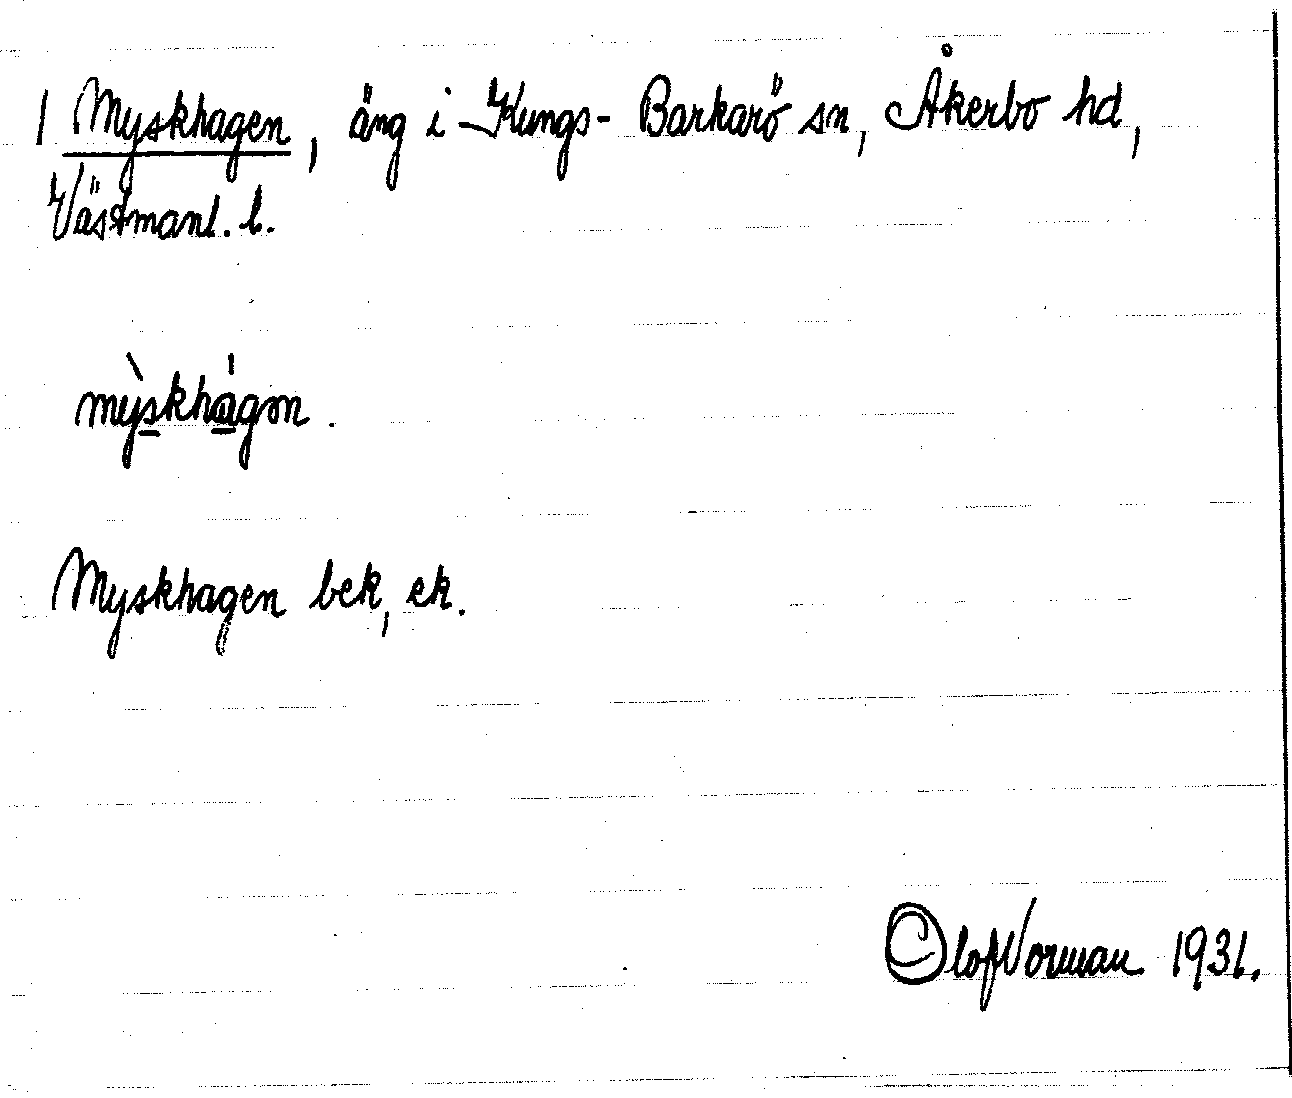 1 Myskhagen, äng i Kungs-Barkarö sn, Åkerbo hd,
Västmanl. l.
mỳskhágən.
Myskhagen bek, ek.
Olof Vorman 1931.